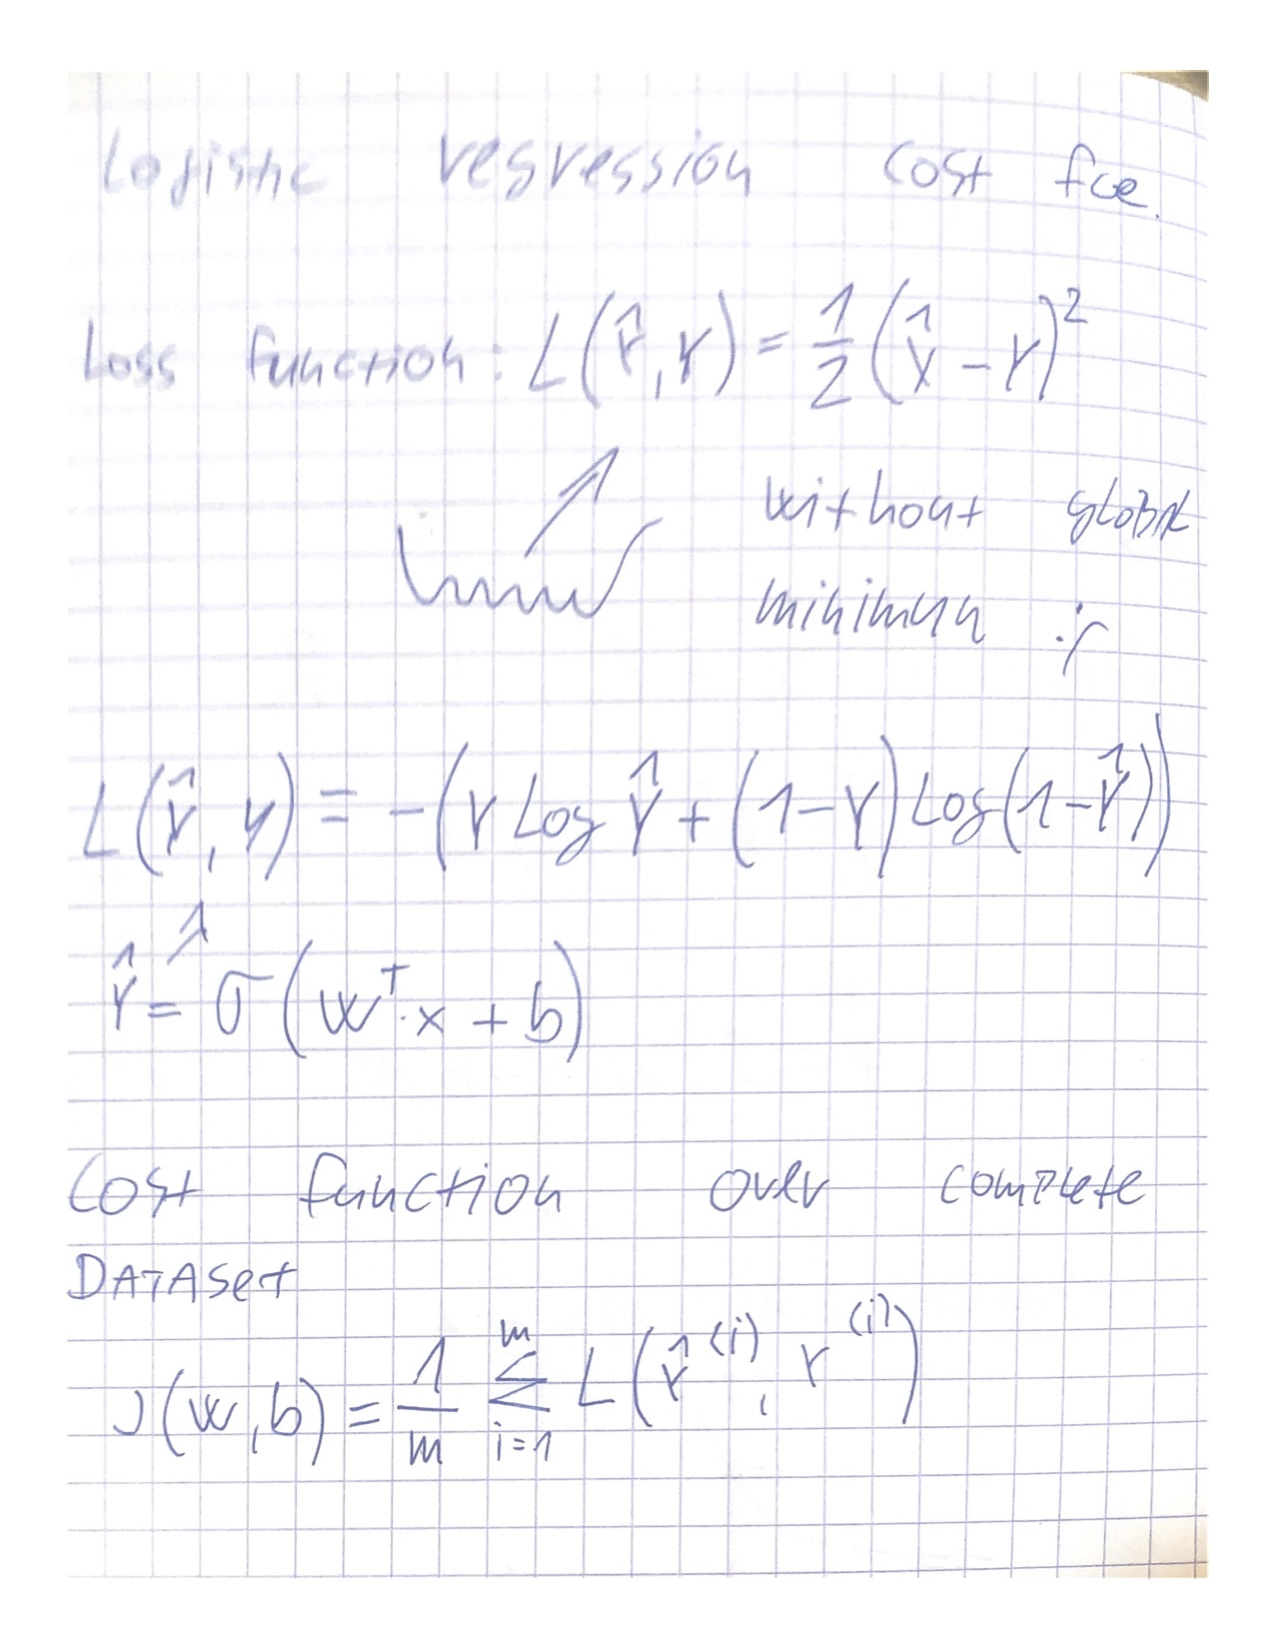 Logistic regression cost fce.
Loss function: L(ŷ, y) = 1/2 (ŷ - y)²
without global
minimum :(
L(ŷ, y) = -(y log ŷ + (1-y) log(1-ŷ))
ŷ = σ(wᵀ·x + b)
Cost function over complete
DATASET
J(w,b) = 1/m Σ_{i=1}^{m} L(ŷ⁽ⁱ⁾, y⁽ⁱ⁾)